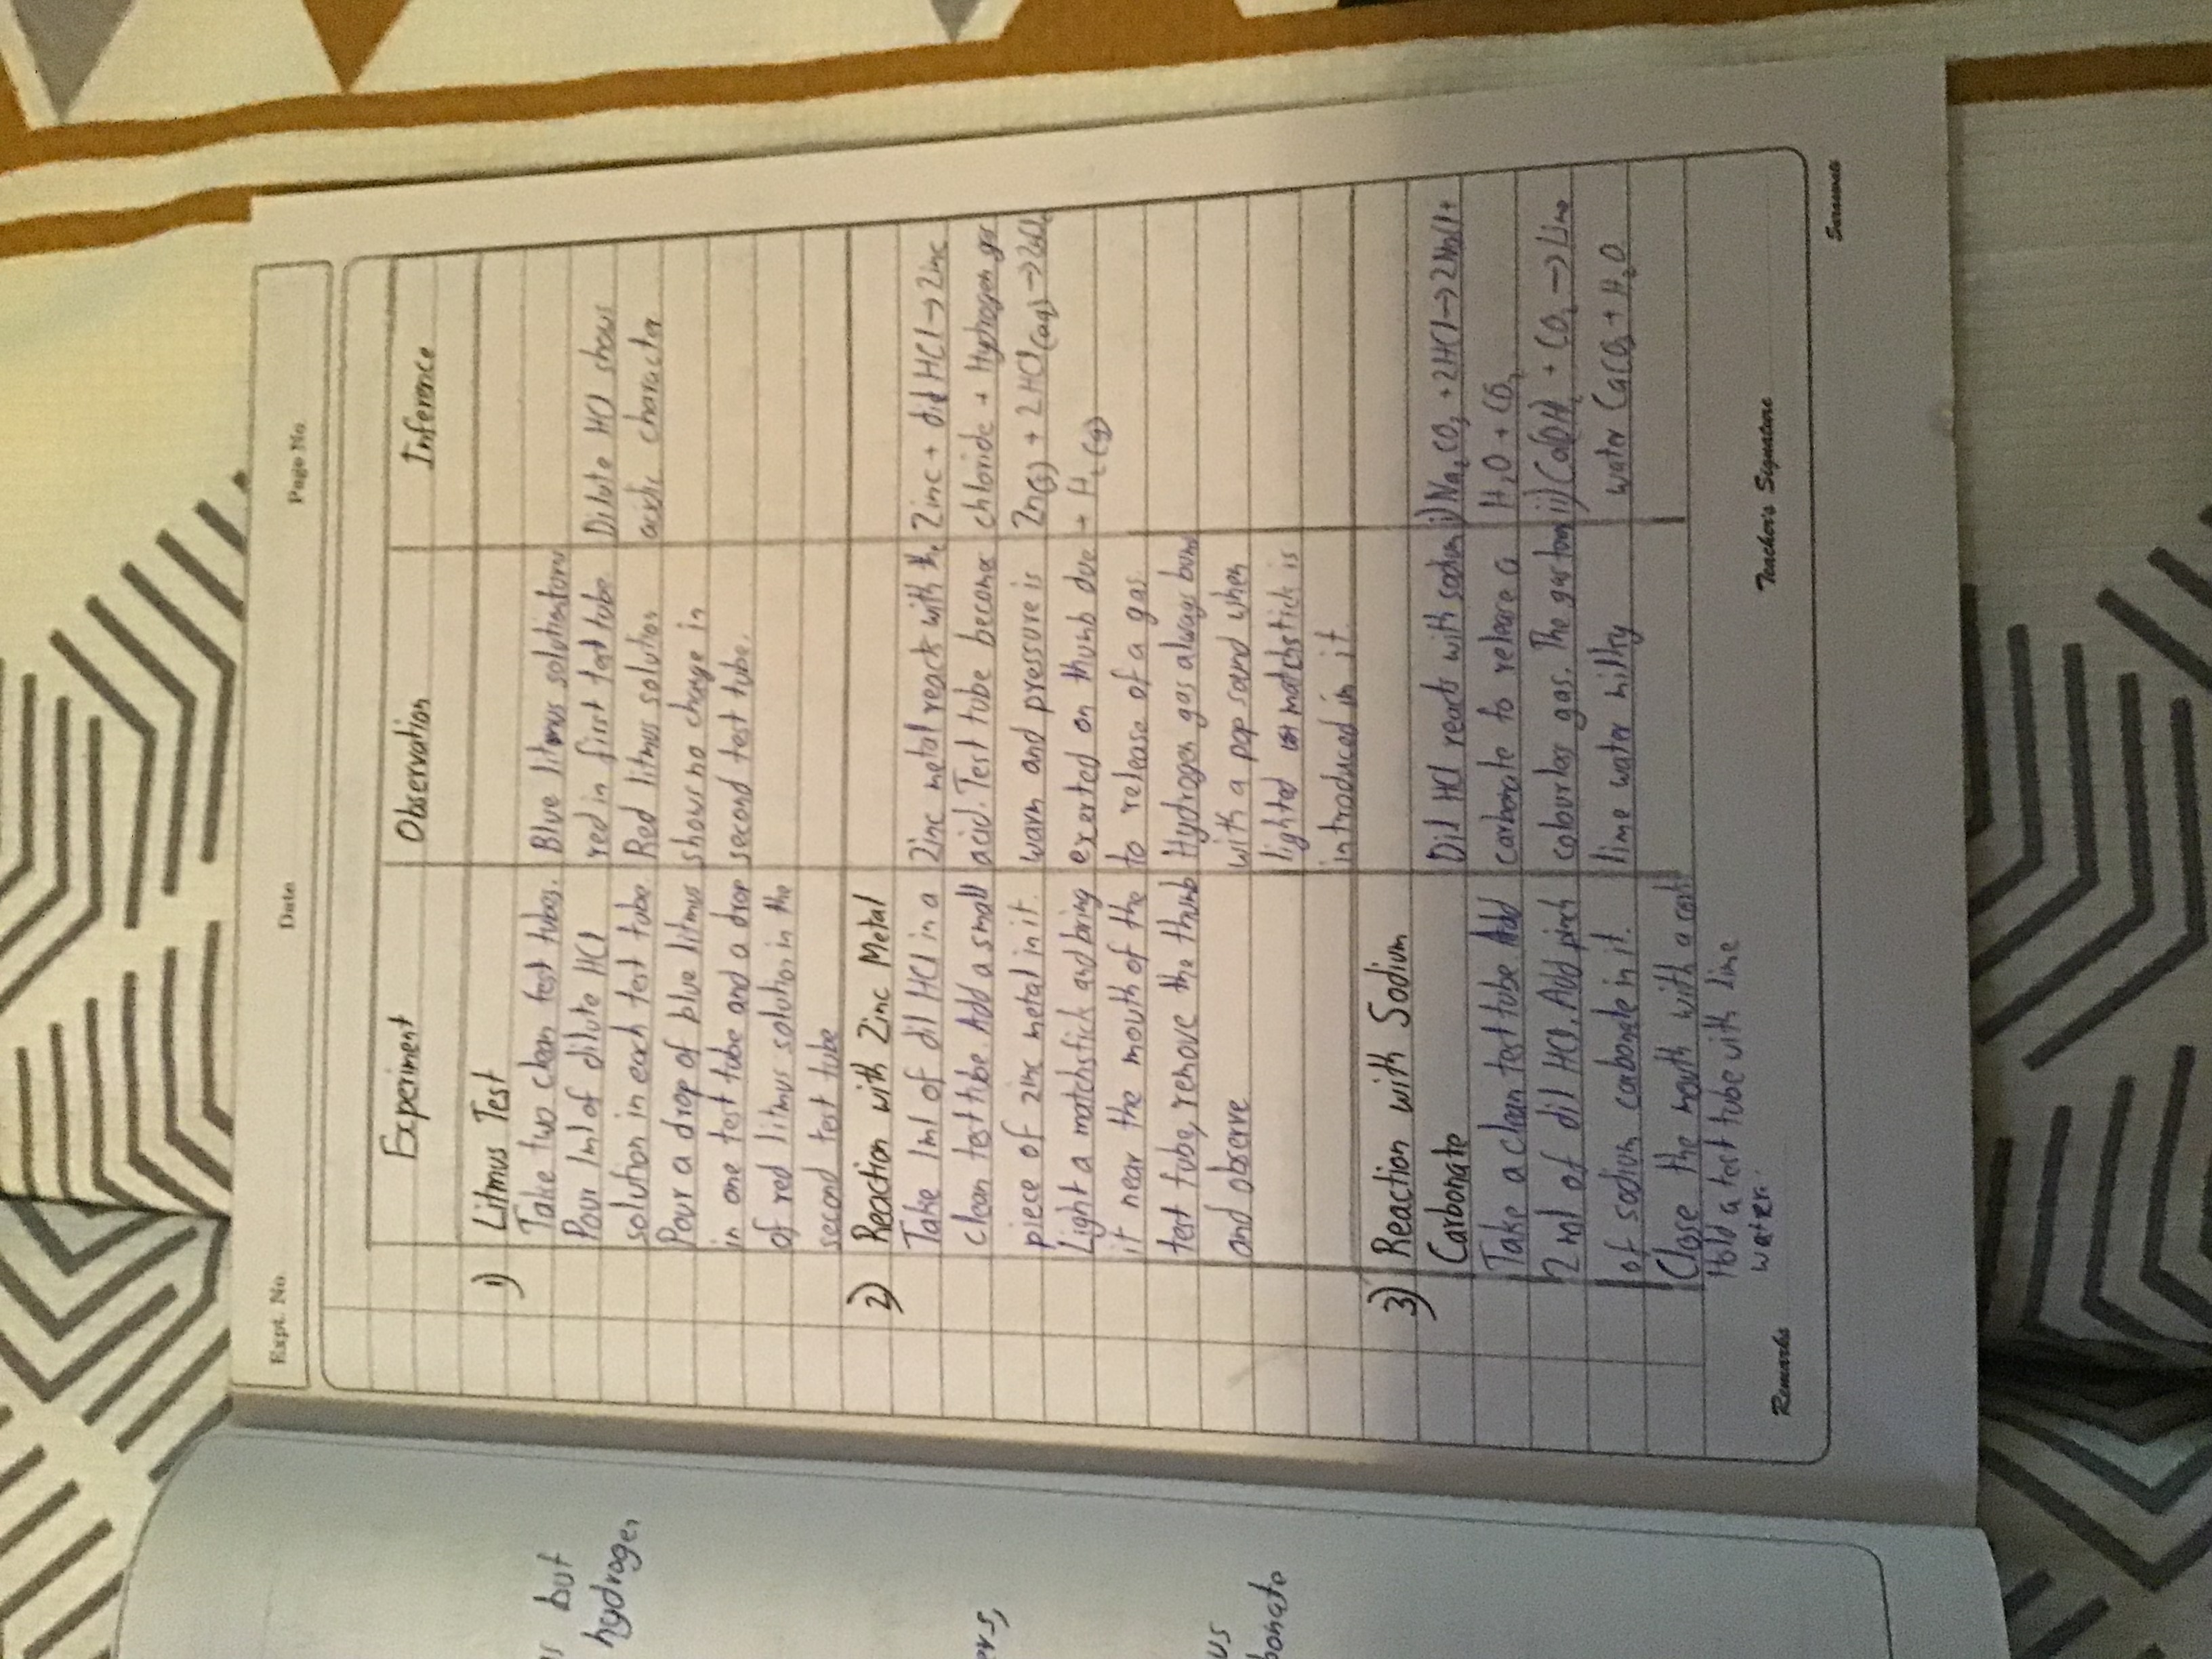 s but
hydrogen
ers,
us
bonate
Expt. No.
Date
Page No.
Experiment
Observation
Inference
1) Litmus Test
Take two clean test tubes.
Pour 1ml of dilute HCl
solution in each test tube
Pour a drop of blue litmus
in one test tube and a drop
of red litmus solution in the
second test tube
Blue litmus solution turns
red in first test tube
Red litmus solution
shows no change in
second test tube.
Dilute HCl shows
acidic character
2) Reaction with Zinc Metal
Take 1ml of dil HCl in a
clean test tube. Add a small
piece of zinc metal in it.
Light a matchstick and bring
it near the mouth of the
test tube, remove the thumb
and observe
Zinc metal reacts with the
acid. Test tube becomes
warm and pressure is
exerted on thumb due
to release of a gas
Hydrogen gas always burns
with a pop sound when
lighted matchstick is
introduced in it.
Zinc + dil HCl → Zinc
chloride + Hydrogen gas
Zn(s) + 2HCl(aq) → ZnCl2
+ H2(g)
3) Reaction with Sodium
Carbonate
Take a clean test tube. Add
2 ml of dil HCl. Add pinch
of sodium carbonate in it.
Close the mouth with a cork
Hold a test tube with lime
water.
Dil HCl reacts with sodium
carbonate to release a
colourless gas. The gas turns
lime water milky
i) Na2CO3 + 2HCl → 2NaCl +
H2O + CO2
ii) Ca(OH)2 + CO2 → Lime
water CaCO3 + H2O
Remarks
Teacher's Signature
Saraswati